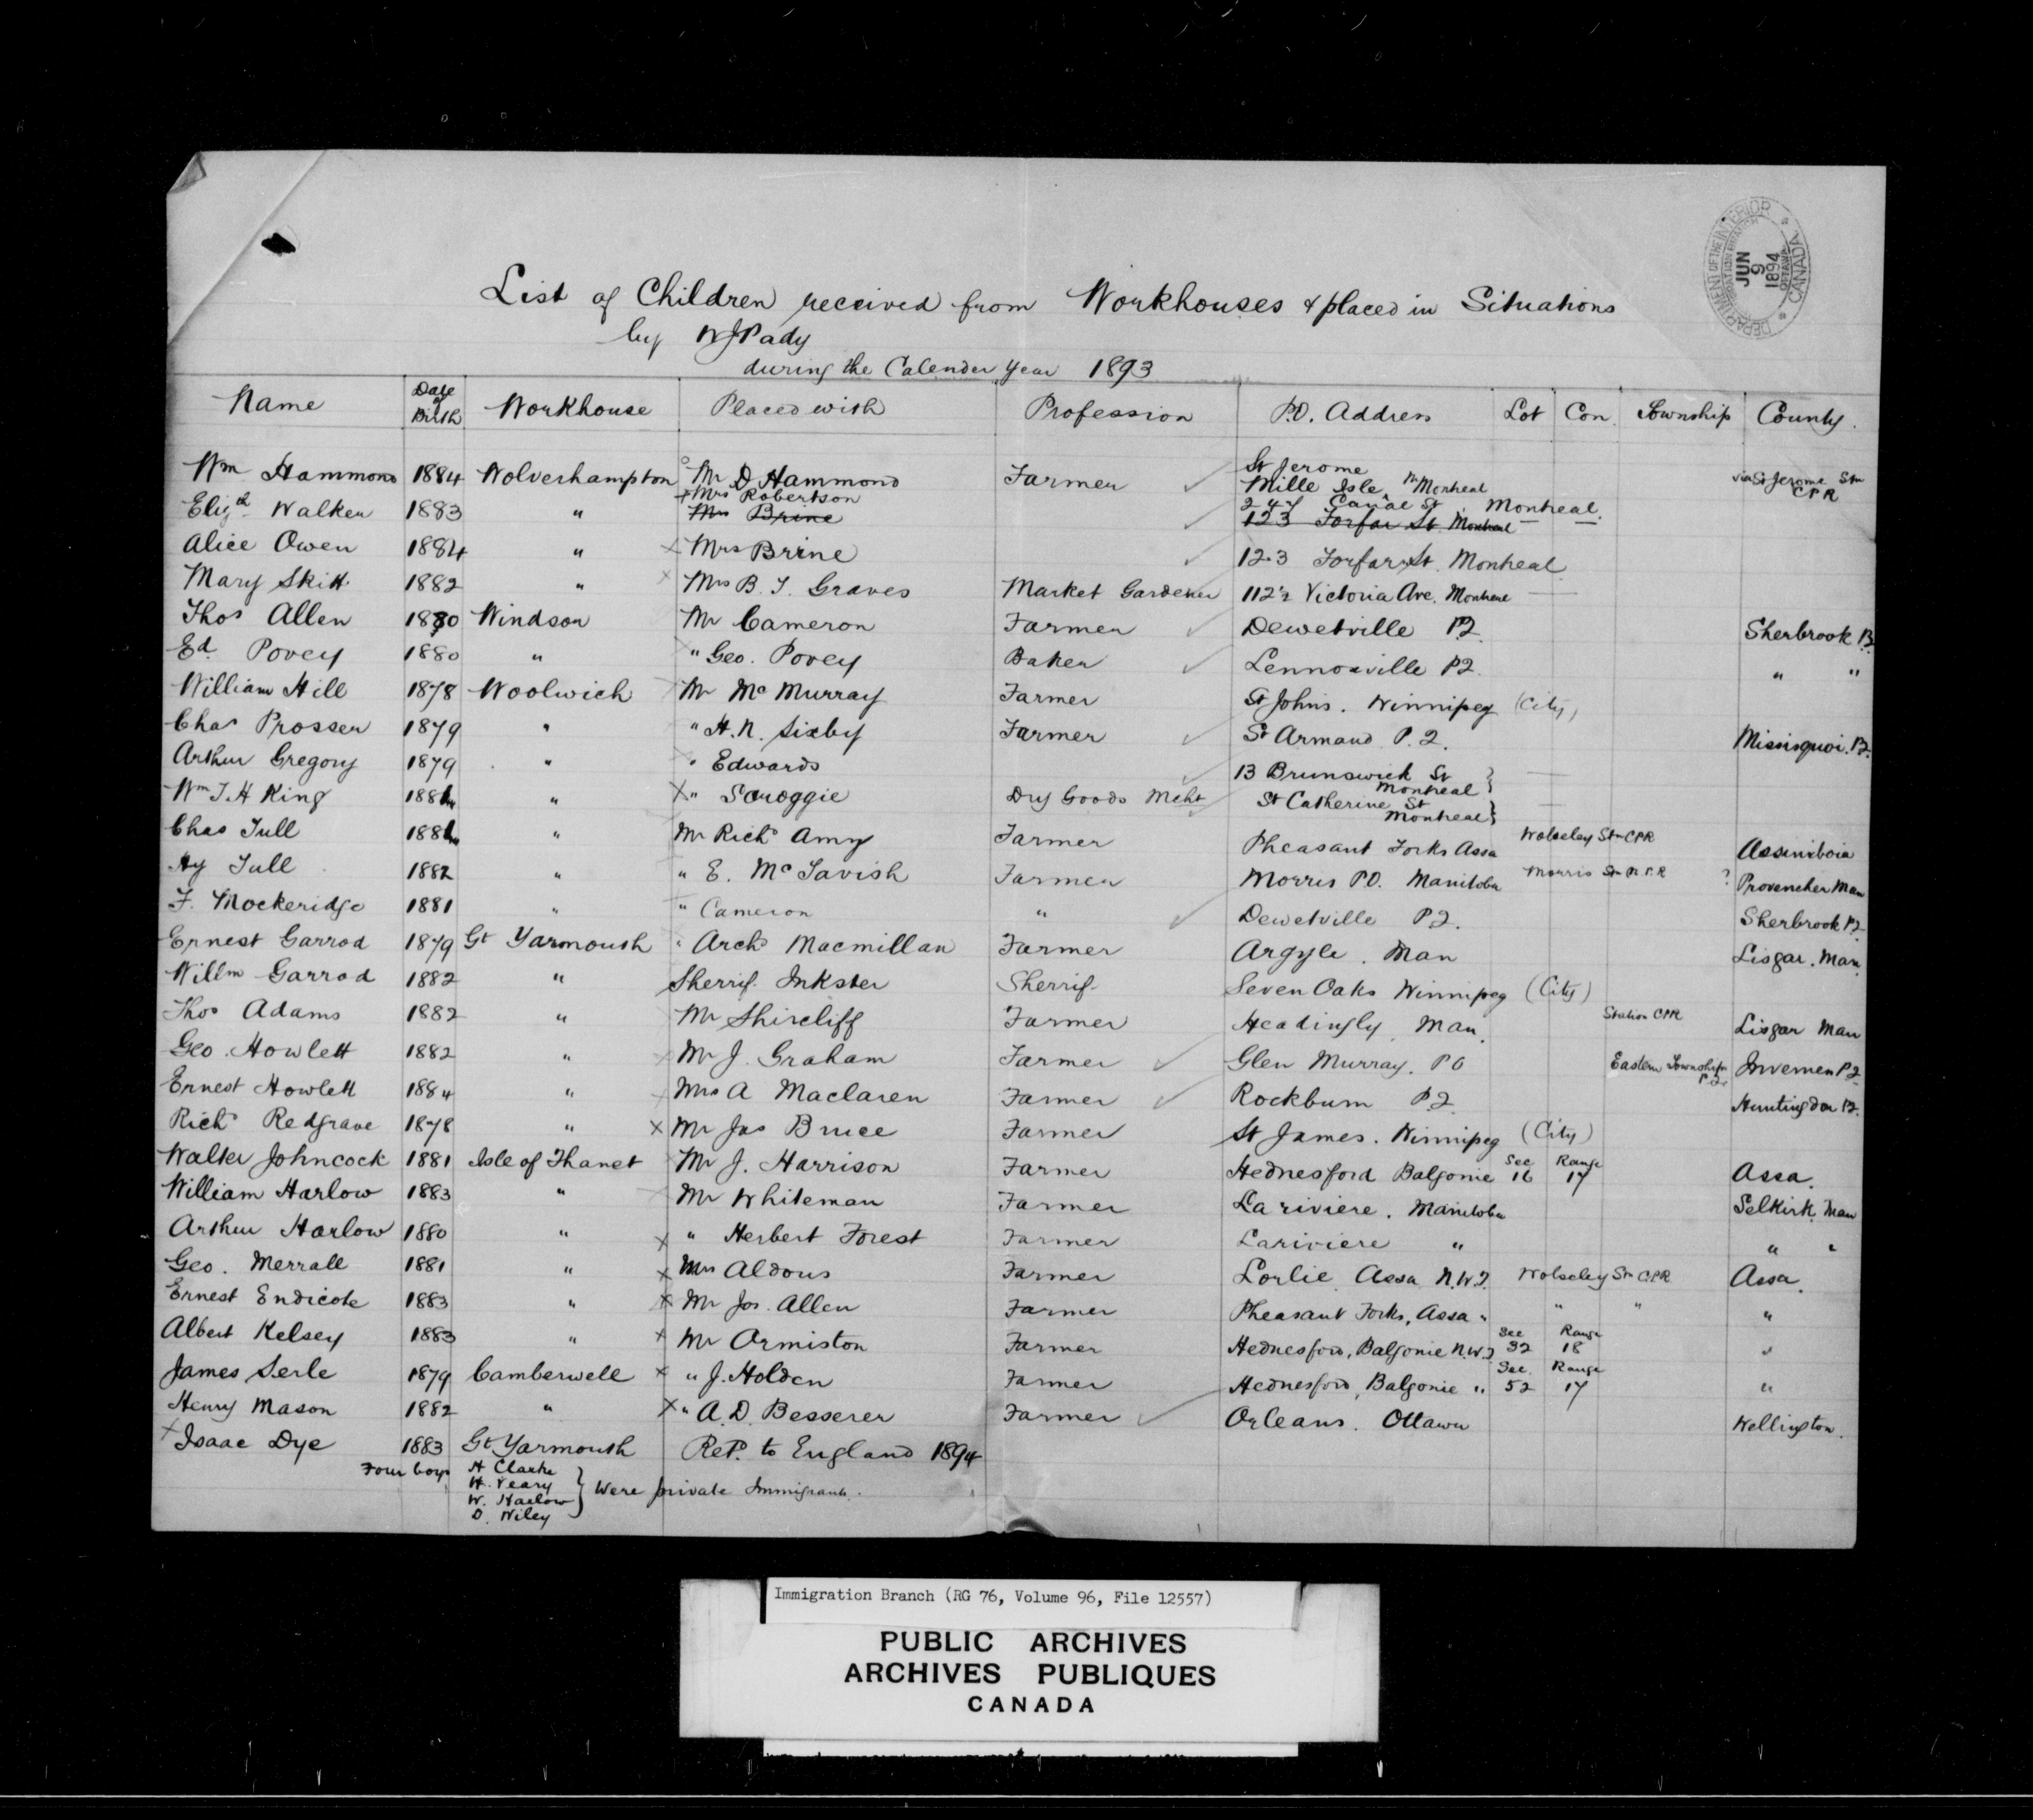 DEPARTMENT OF THE INTERIOR
IMMIGRATION BRANCH
JUN
9
1894
OTTAWA
CANADA
List of Children received from Workhouses & placed in Situations
by WJPady
during the Calender Year 1893
Name Date of Birth Workhouse Placed with Profession P.O. Address Lot Con. Township County.
Wm Hammond 1884 Wolverhampton Mr D Hammond Farmer St Jerome Mille Isle, Montreal via St Jerome Stn CPR
Elizth Walker 1883 " Mrs Robertson Mrs Brine 247 Canal St. Montreal. 123 Forfar St Montreal
Alice Owen 1884 " Mrs Brine 123 Forfar St. Montreal
Mary Skitt 1882 " Mrs B. T. Graves Market Gardener 112½ Victoria Ave. Montreal
Thos Allen 1880 Windsor Mr Cameron Farmer Dewetville P.Q. Sherbrook P.Q.
Ed. Povey 1880 " " Geo. Povey Baker Lennoxville P.Q. " "
William Hill 1878 Woolwich Mr McMurray Farmer St Johns. Winnipeg (City)
Chas Prosser 1879 " " H. N. Sixby Farmer St Armand P.Q. Missisquoi. P.Q.
Arthur Gregory 1879 " " Edwards 13 Brunswick St Montreal }
Wm T. H King 188 " " Scroggie Dry Goods Mcht St Catherine St Montreal }
Chas Tull 188 " Mr Richd Amy Farmer Pheasant Forks Assa Wolseley Stn CPR Assiniboia
Hy Tull 1882 " " E. McTavish Farmer Morris P.O. Manitoba Morris Stn C.P.R ? Provencher Man
F. Mockeridge 1881 " " Cameron " Dewetville P.Q. Sherbrook P.Q.
Ernest Garrod 1879 Gt Yarmouth " Archd Macmillan Farmer Argyle. Man Lisgar. Man.
Willm Garrod 1882 " Sherrif Inkster Sherrif Seven Oaks Winnipeg (City)
Thos Adams 1882 " Mr Shircliff Farmer Headingly, Man. Station CPR Lisgar Man
Geo. Howlett 1882 " Mr J. Graham Farmer Glen Murray. P O Eastern Townships P.Q. P.Q.
Ernest Howlett 1884 " Mrs A Maclaren Farmer Rockburn P.Q. Huntingdon P.Q.
Richd Redgrave 1878 " X Mr Jas Bruce Farmer St James. Winnipeg (City)
Walter Johncock 1881 Isle of Thanet Mr J. Harrison Farmer Hednesford Balgonie Sec 16 Range 17 Assa.
William Harlow 1883 " Mr Whiteman Farmer La riviere. Manitoba Selkirk Man
Arthur Harlow 1880 " X " Herbert Forest Farmer Lariviere " " "
Geo. Merrall 1881 " X Mrs Aldous Farmer Lorlie. Assa N.W.T. Wolseley Stn C.P.R Assa.
Ernest Endicote 1883 " X Mr Jos. Allen Farmer Pheasant Forks, Assa " " " "
Albert Kelsey 1883 " X Mr Ormiston Farmer Hednesford, Balgonie N.W.T Sec 32 Range 18 "
James Serle 1879 Camberwell X " J. Holden Farmer Hednesford, Balgonie " Sec. 52 Range 17 "
Henry Mason 1882 " X " A. D. Besserer Farmer Orleans. Ottawa Wellington.
X Isaac Dye 1883 Gt Yarmouth Retd. to England 1894
Four boys H Clarke
H. Veary
W. Harlow
D. Wiley } Were private Immigrants.
Immigration Branch (RG 76, Volume 96, File 12557)
PUBLIC ARCHIVES
ARCHIVES PUBLIQUES
CANADA